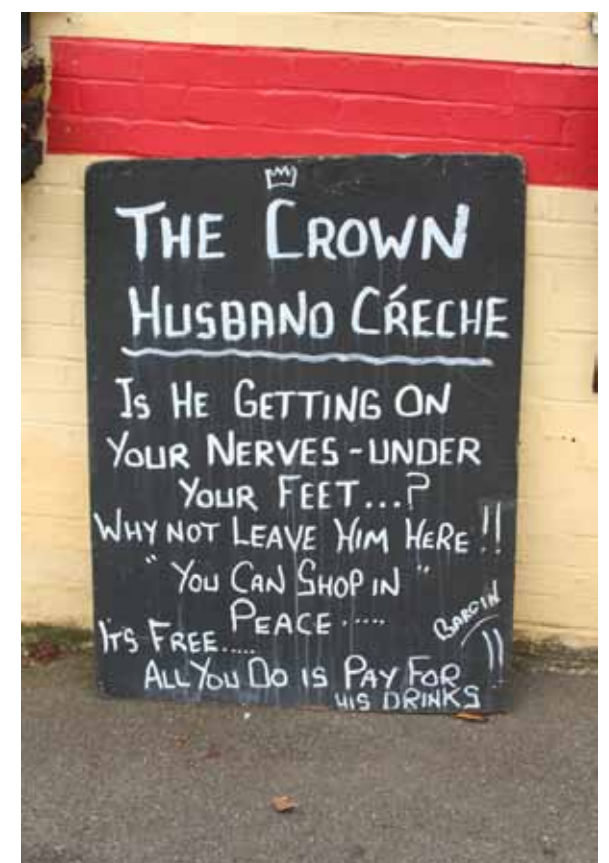 THE CROWN
HUSBAND CŔECHE
IS HE GETTING ON
YOUR NERVES - UNDER
YOUR FEET...?
WHY NOT LEAVE HIM HERE!!
"YOU CAN SHOP IN"
PEACE.....
BARGIN!!
IT'S FREE.....
ALL YOU DO IS PAY FOR
HIS DRINKS